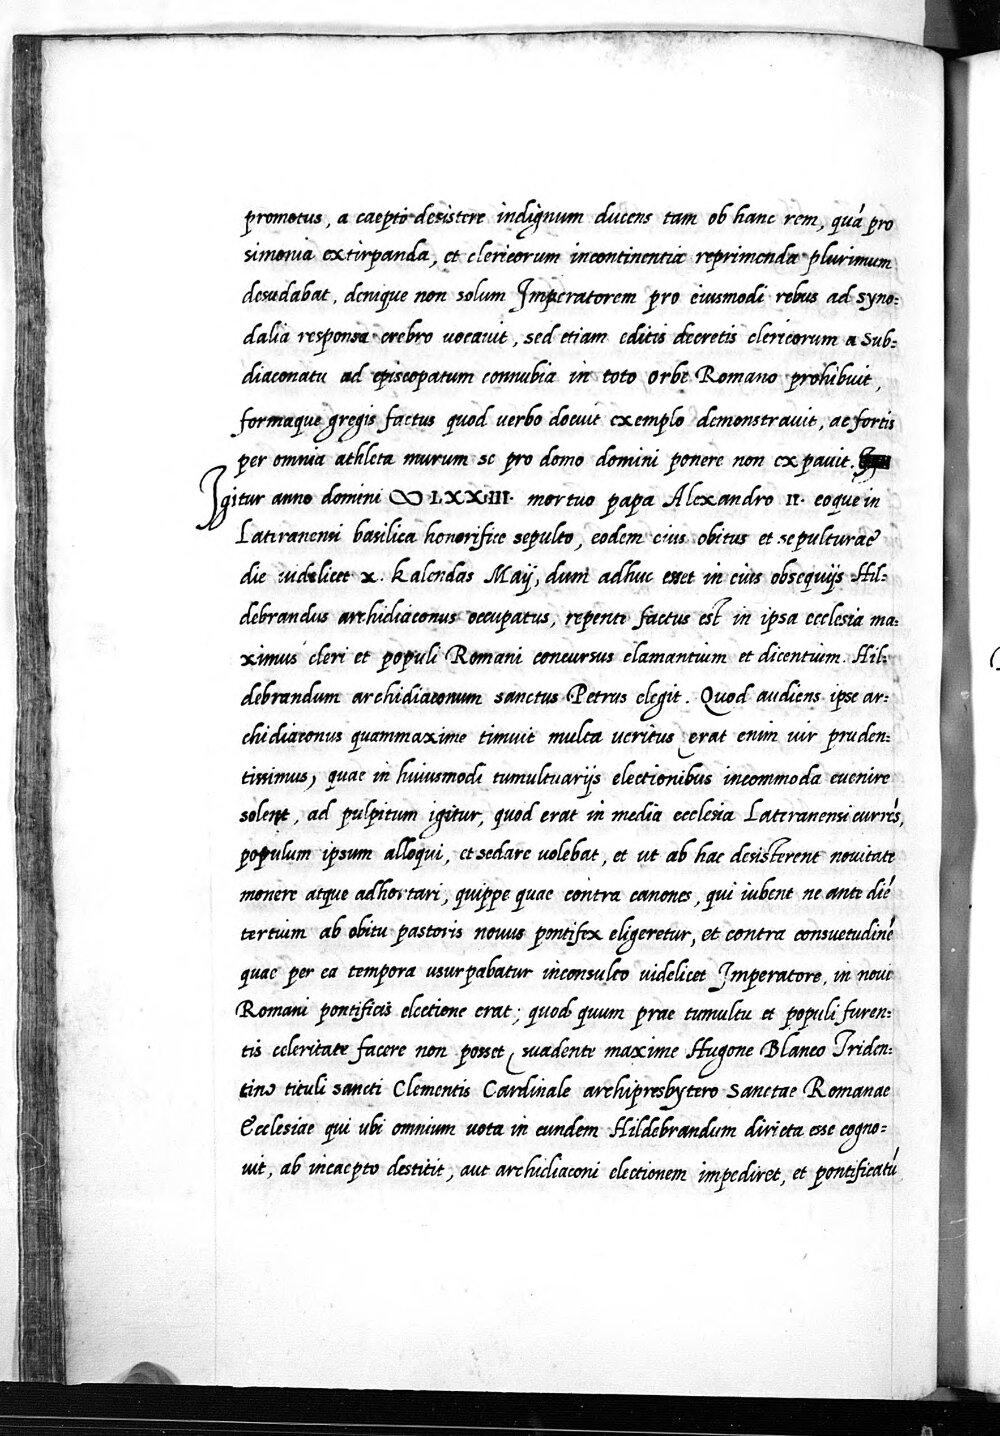 promotus, a caepto desistere indignum ducens tam ob hanc rem, quá pro
simonia extirpanda, et clericorum incontinentia reprimenda plurimum
desudabat, denique non solum Imperatorem pro eiusmodi rebus ad syno=
dalia responsa crebro vocavit, sed etiam editis decretis clericorum a Sub=
diaconatu ad episcopatum connubia in toto orbe Romano prohibuit,
formaque gregis factus quod verbo docuit exemplo demonstravit, ac fortis
per omnia athleta murum se pro domo domini ponere non expavit.
Igitur anno domini ∞ LXXIII. mortuo papa Alexandro II. eoque in
Lateranensi basilica honorifice sepulto, eodem eius obitus et sepulturae
die videlicet x. Kalendas Maij, dum adhuc esset in eius obsequijs Hil=
debrandus archidiaconus occupatus, repente factus est in ipsa ecclesia ma=
ximus cleri et populi Romani concursus clamantium et dicentium. Hil=
debrandum archidiaconum sanctus Petrus elegit. Quod audiens ipse ar=
chidiaconus quammaxime timuit multa veritus (erat enim vir pruden=
tissimus) quae in huiusmodi tumultuarijs electionibus incommoda evenire
solent, ad pulpitum igitur, quod erat in media ecclesia Lateranensi currés,
populum ipsum alloqui, et sedare volebat, et ut ab hac desisterent novitate
monere atque adhortari, quippe quae contra canones, qui iubent ne ante dié
tertium ab obitu pastoris novus pontifex eligeretur, et contra consuetudiné
quae per ea tempora usurpabatur inconsulto videlicet Imperatore, in novi
Romani pontificis electione erat; quod quum prae tumultu et populi furen=
tis celeritate facere non posset (suadente maxime Hugone Blanco Triden=
tino tituli sancti Clementis Cardinale archipresbytero Sanctae Romanae
Ecclesiae qui ubi omnium vota in eundem Hildebrandum directa esse cogno=
vit, ab incaepto destitit, aut archidiaconi electionem impediret, et pontificatú